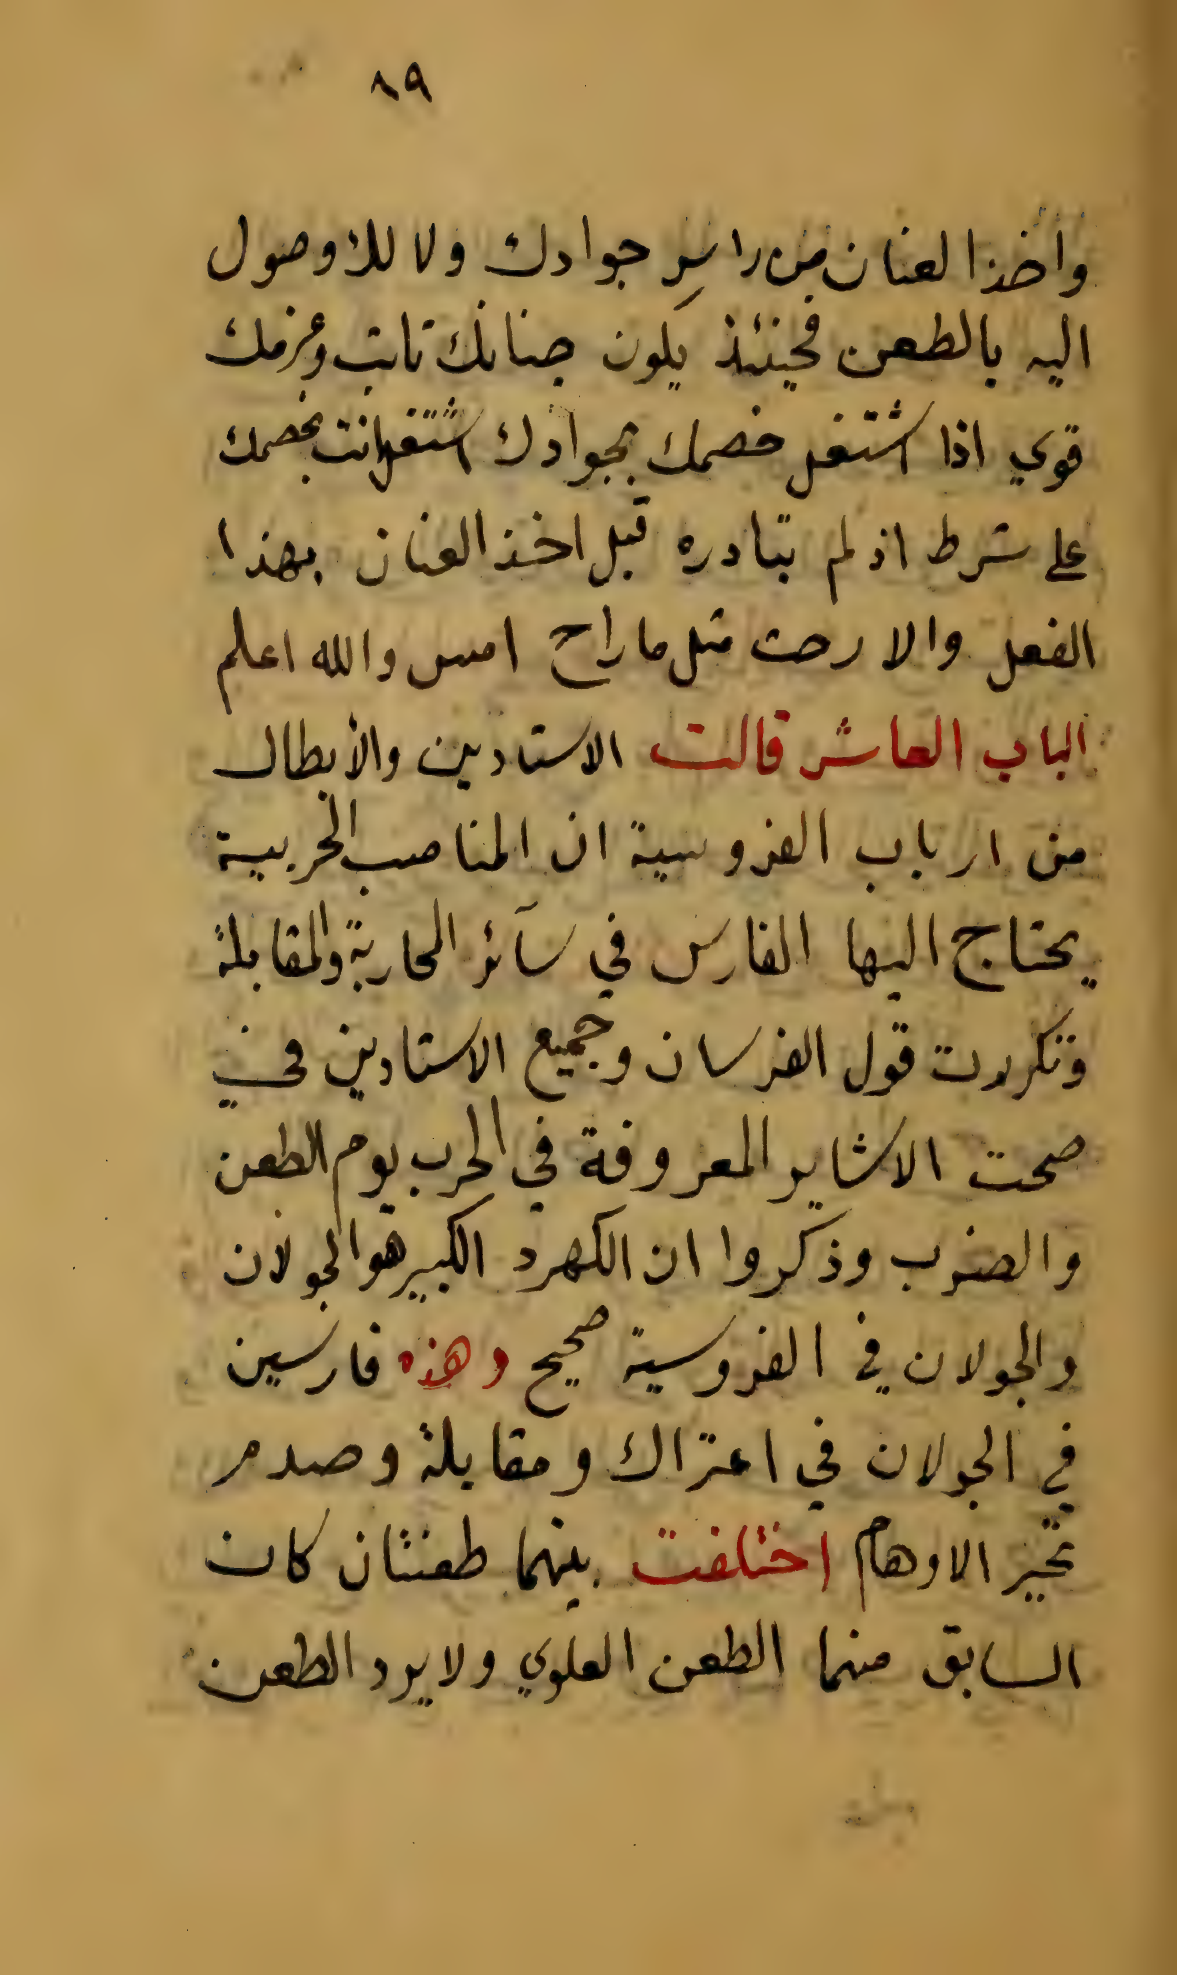 ٨٩
واخذ العنان من راس جوادك ولا للاوصول
اليه بالطعن فحينئذ يكون جنانك تابت وعزمك
قوي اذا اشتغل خصمك بجوادك اشتغل انت بخصمك
على شرط اذ لم تبادره قبل اخذ العنان بهذا
الفعل والا رحت متل ما راح امس والله اعلم
الباب العاشر قالت الاستادين والأبطال
من ارباب الفروسية ان المناصب الحربية
يحتاج اليها الفارس في سآئر المحاربة والمقابلة
وتكررت قول الفرسان وجميع الاستادين في
صحت الاشاير المعروفة في الحرب يوم الطعن
والضرب وذكروا ان الكهرد الكبير هو الجولان
والجولان في الفروسية صحيح وهذه فارسين
في الجولان في اعتراك ومقابلة وصدم
تحير الاوهام اختلفت بينهما طعنتان كان
السابق منهما الطعن العلوي ولا يرد الطعن